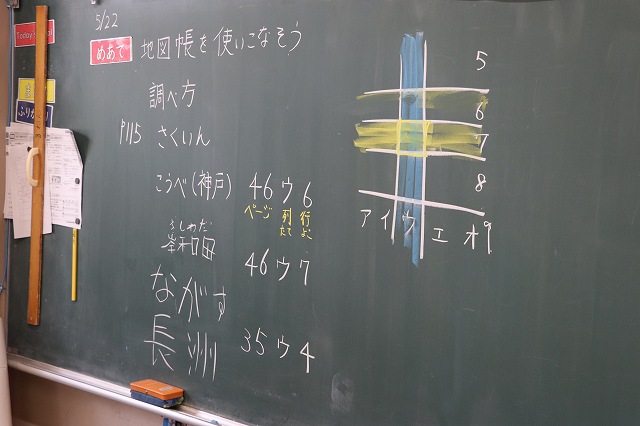 5/22
めあて 地図帳を使いこなそう
調べ方
P115 さくいん
こうべ(神戸) 46ウ6
ページ 列 たて 行 よこ
きしわだ
岸和田 46ウ7
ながす
長洲 35ウ4
5
6
7
8
アイウエオ 9